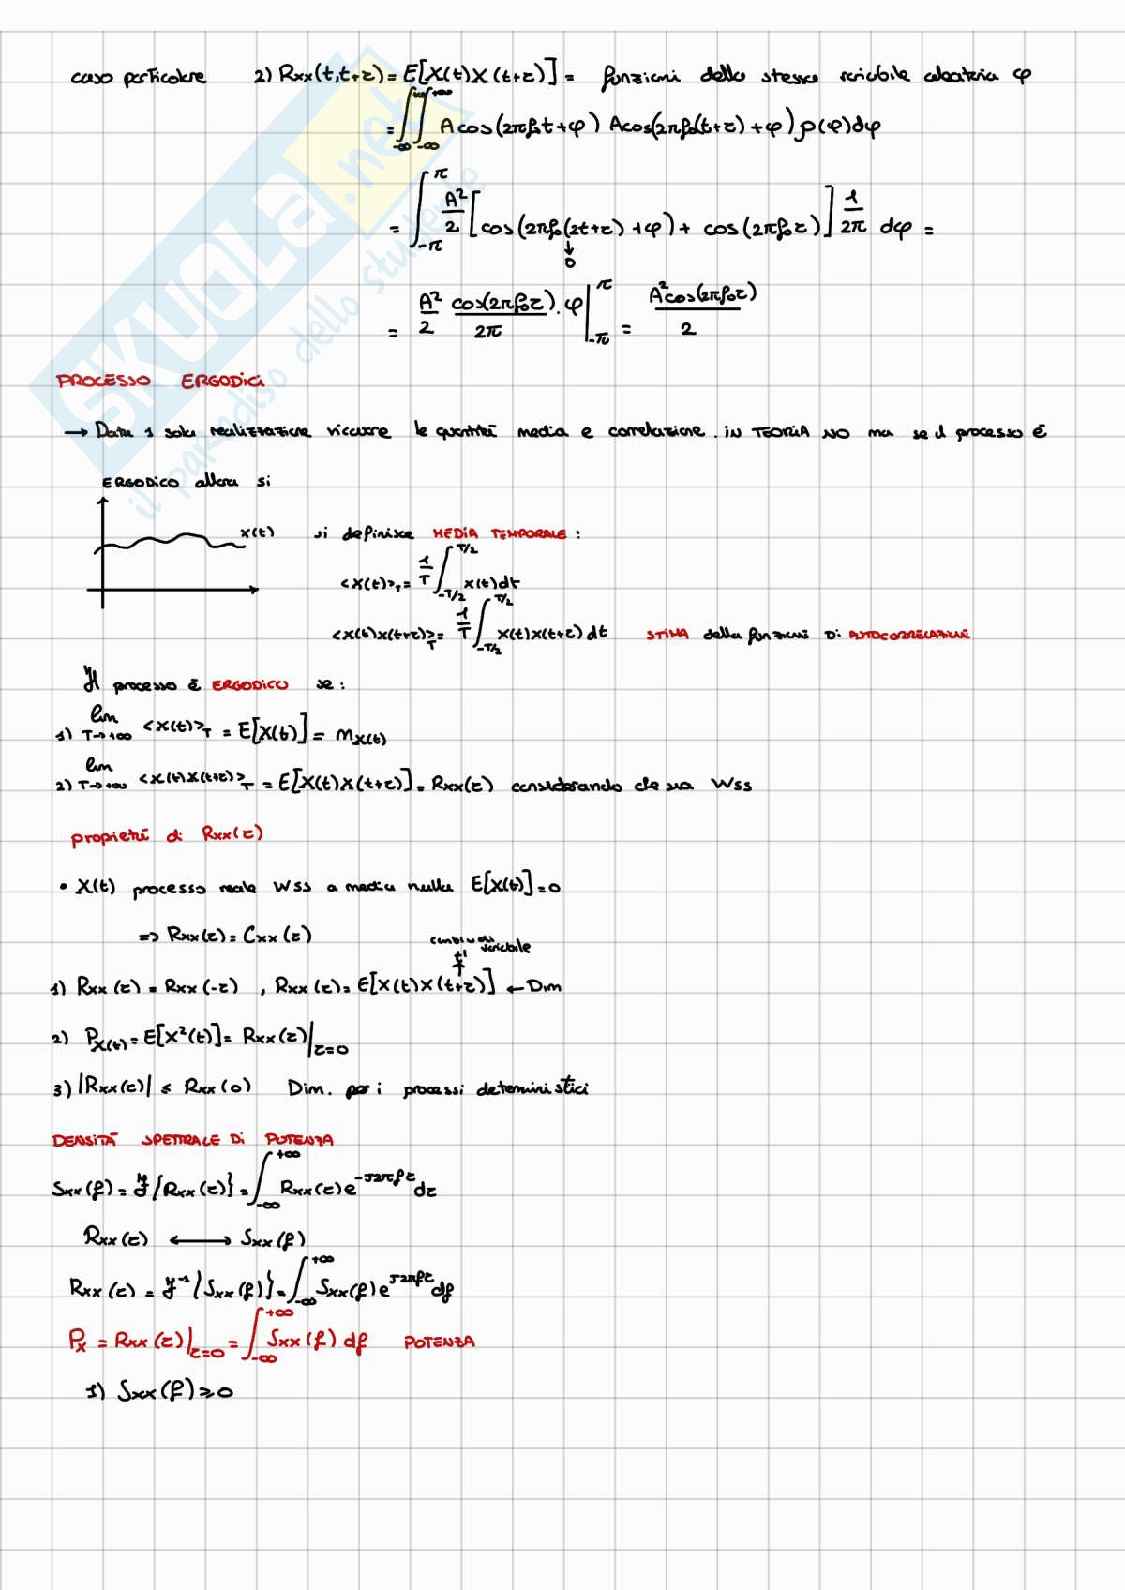 caso particolare 2) Rxx(t,t+τ) = E[X(t)X(t+τ)] = funzioni della stessa variabile aleatoria φ
= ∫∫_{-∞}^{+∞} A cos(2πf₀t+φ) A cos(2πf₀(t+τ)+φ) p(φ)dφ
= ∫_{-π}^{π} A²/2 [cos(2πf₀(2t+τ)+φ) + cos(2πf₀τ)] 1/2π dφ =
↓
0
= A²/2 cos(2πf₀τ)/2π · φ |_{-π}^{π} = A²cos(2πf₀τ)/2
PROCESSO ERGODICI
→ Data 1 sola realizzazione ricavare le quantità media e correlazione. IN TEORIA NO ma se il processo è
ERGODICO allora si
x(t) si definisce MEDIA TEMPORALE:
<X(t)>_T = 1/T ∫_{-T/2}^{T/2} x(t)dt
<x(t)x(t+τ)>_T = 1/T ∫_{-T/2}^{T/2} x(t)x(t+τ)dt STIMA della funzioni Di AUTOCORRELAZIONE
Il processo è ERGODICO se:
1) lim T→+∞ <X(t)>_T = E[X(t)] = m_X(t)
2) lim T→+∞ <X(t)X(t+τ)>_T = E[X(t)X(t+τ)] = Rxx(τ) considerando che sia WSS
propietà di Rxx(τ)
• X(t) processo reale WSS a media nulla E[X(t)]=0
=> Rxx(τ) = Cxx(τ)
variabile
t'
1) Rxx(τ) = Rxx(-τ) , Rxx(τ) = E[X(t)X(t+τ)] ← Dim
2) P_X(t) = E[X²(t)] = Rxx(τ)|_{τ=0}
3) |Rxx(τ)| ≤ Rxx(0) Dim. per i processi deterministici
DENSITÀ SPETTRALE Di POTENZA
Sxx(f) = ℱ{Rxx(τ)} = ∫_{-∞}^{+∞} Rxx(τ)e^{-J2πfτ}dτ
Rxx(τ) ⟷ Sxx(f)
Rxx(τ) = ℱ⁻¹{Sxx(f)} = ∫_{-∞}^{+∞} Sxx(f)e^{J2πfτ}df
Px = Rxx(τ)|_{τ=0} = ∫_{-∞}^{+∞} Sxx(f)df POTENZA
1) Sxx(f) ≥ 0
SKUOLA.net
il paradiso dello studente